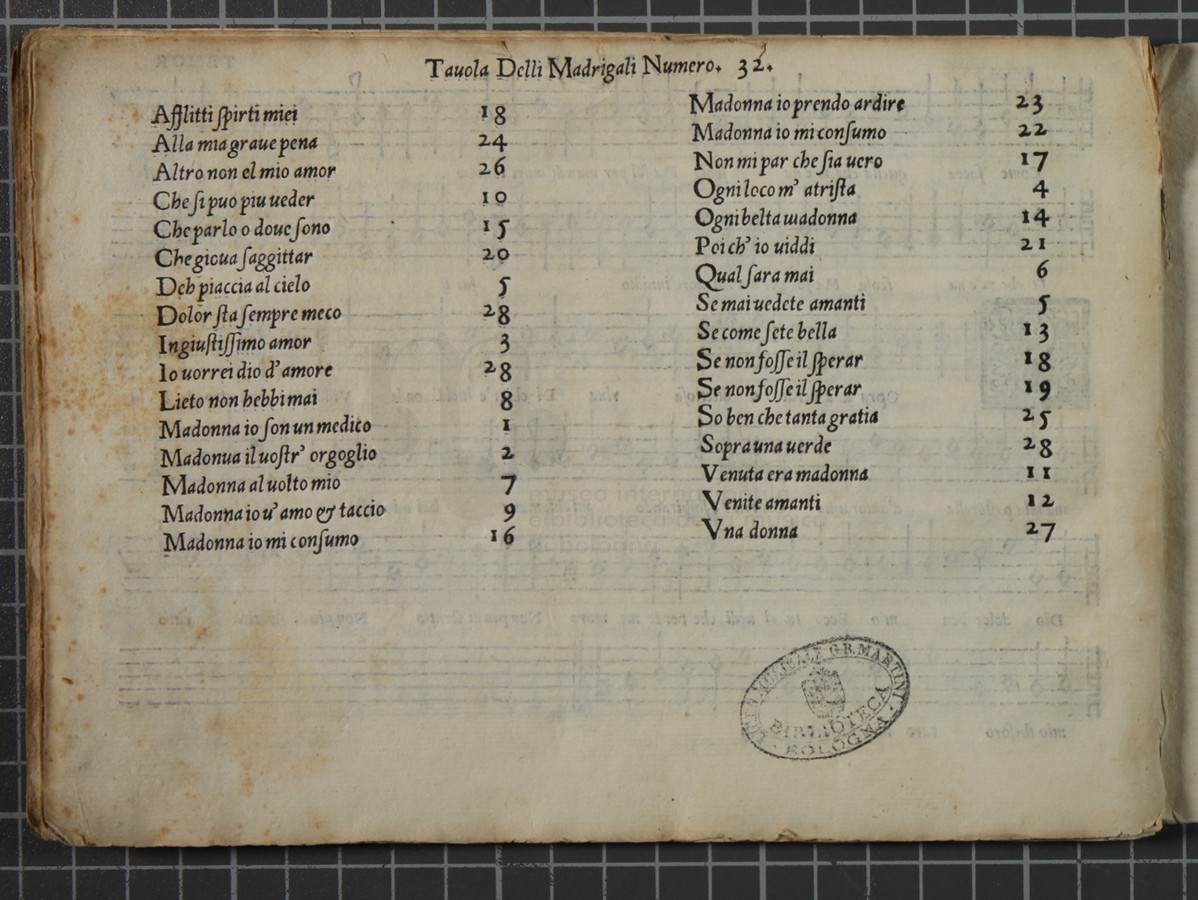 Tauola Delli Madrigali Numero. 32.
Afflitti ſpirti miei 18
Alla mia graue pena 24
Altro non el mio amor 26
Che ſi puo piu ueder 10
Che parlo o doue ſono 15
Che gioua ſaggittar 20
Deh piaccia al cielo 5
Dolor ſta ſempre meco 28
Ingiuſtiſſimo amor 3
Io uorrei dio d' amore 28
Lieto non hebbi mai 8
Madonna io ſon un medico 1
Madonua il uoſtr' orgoglio 2
Madonna al uolto mio 7
Madonna io u' amo & taccio 9
Madonna io mi conſumo 16
Madonna io prendo ardire 23
Madonna io mi conſumo 22
Non mi par che ſia uero 17
Ogni loco m' atriſta 4
Ogni belta madonna 14
Poi ch' io uiddi 21
Qual ſara mai 6
Se mai uedete amanti 5
Se come ſete bella 13
Se non foſſe il ſperar 18
Se non foſſe il ſperar 19
So ben che tanta gratia 25
Sopra una uerde 28
Venuta era madonna 11
Venite amanti 12
Vna donna 27
LICEO MUSICALE G.B. MARTINI
BIBLIOTECA
BOLOGNA